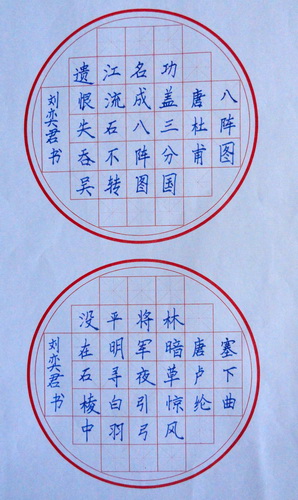 八阵图
唐杜甫
功盖三分国
名成八阵图
江流石不转
遗恨失吞吴
刘奕君书
塞下曲
唐卢纶
林暗草惊风
将军夜引弓
平明寻白羽
没在石棱中
刘奕君书